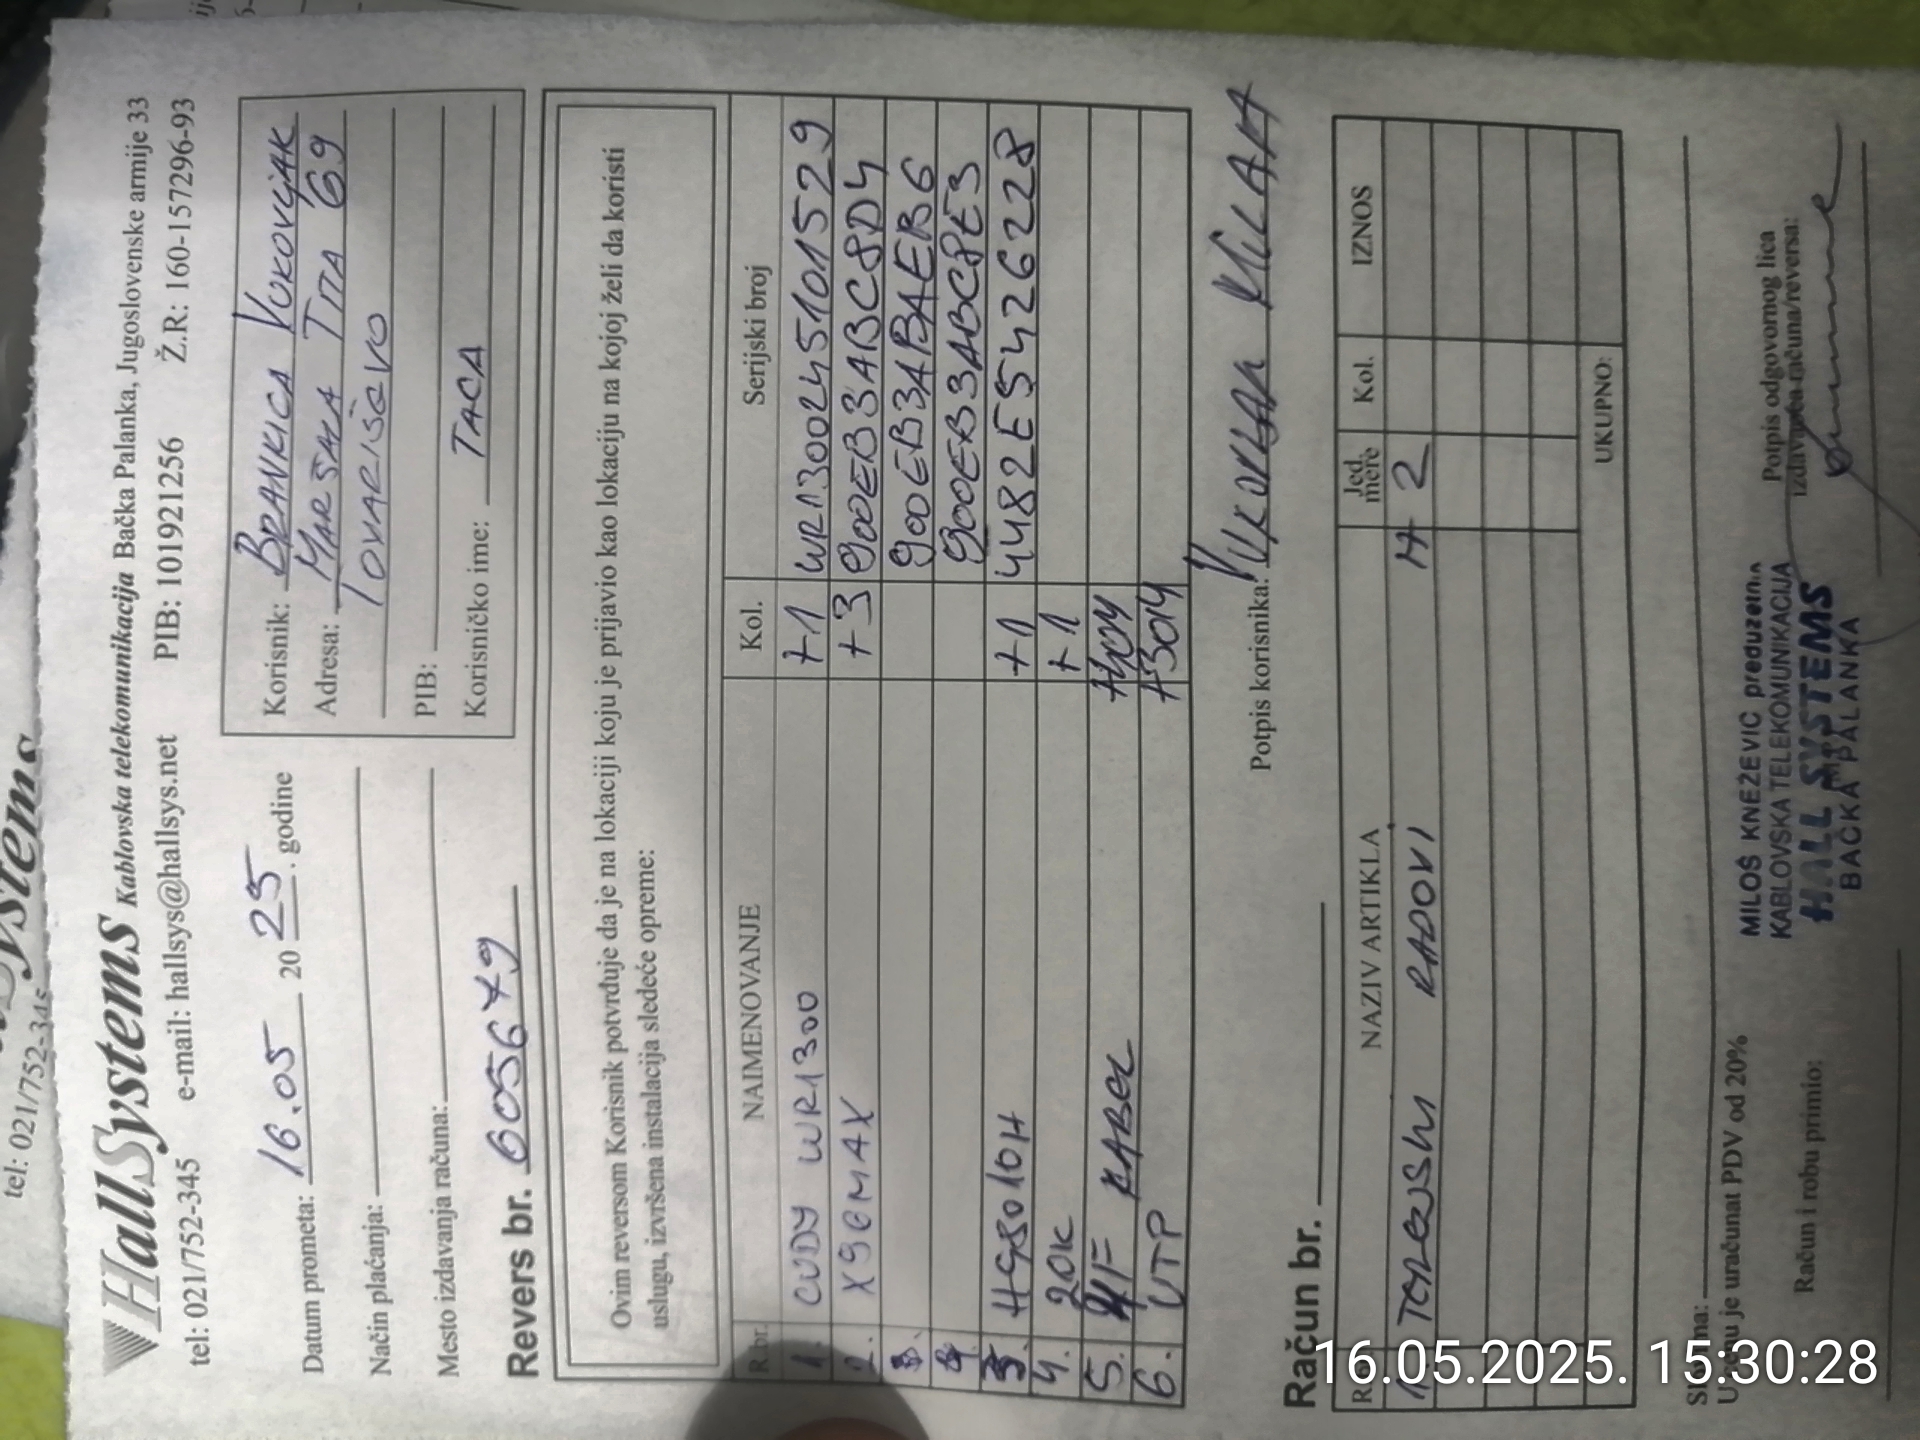 tel: 021/752-345
HallSystems Kablovska telekomunikacija Bačka Palanka, Jugoslovenske armije 33
tel: 021/752-345 e-mail: hallsys@hallsys.net PIB: 101921256 Ž.R: 160-157296-93
Datum prometa: 16.05 2025. godine
Način plaćanja:
Mesto izdavanja računa:
Korisnik: BRANKICA VUKOVJAK
Adresa: MARŠALA TITA 69
TOVARIŠEVO
PIB:
Korisničko ime: TACA
Revers br. 605679
Ovim reversom Korisnik potvrđuje da je na lokaciji koju je prijavio kao lokaciju na kojoj želi da koristi
uslugu, izvršena instalacija sledeće opreme:
R.br. NAIMENOVANJE Kol. Serijski broj
1. CUDY WR1300 +1 WR1300245101529
2. X96MAX +3 900EB3ABC8D4
900EB3ABAEB6
900EB3ABC8E3
3. HG8010H +1 4482E5426228
4. 20K +1
5. KABEL
6. UTP
Potpis korisnika:
Račun br.
NAZIV ARTIKLA Jed. mere Kol. IZNOS
1. TERENSKI RADOVI H 2
UKUPNO:
Slovima:
U cenu je uračunat PDV od 20%
Račun i robu primio:
MILOŠ KNEŽEVIĆ preduzetnik
KABLOVSKA TELEKOMUNIKACIJA
HALL SYSTEMS
BAČKA PALANKA
Potpis odgovornog lica
izdavaoca računa/reversa:
16.05.2025. 15:30:28